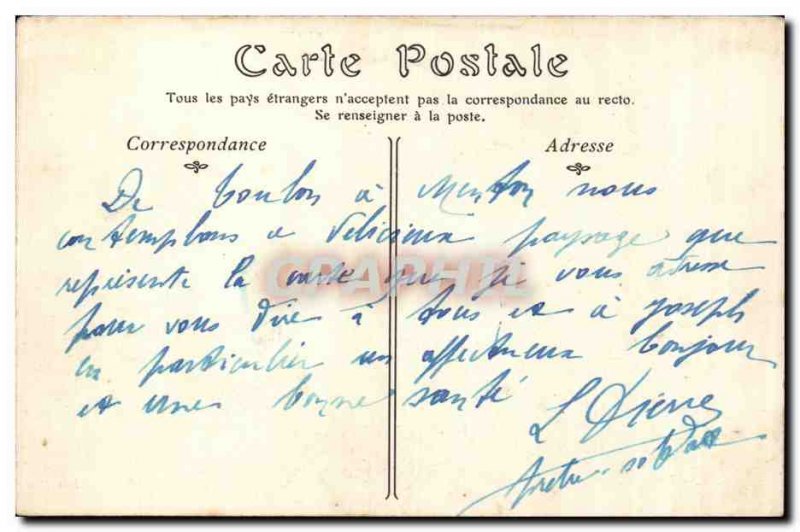 Carte Postale
Tous les pays étrangers n'acceptent pas la correspondance au recto.
Se renseigner à la poste.
Correspondance Adresse
De Toulon à Menton nous
contemplons ce délicieux paysage que
représente la carte que je vous adresse
pour vous dire à tous et à Joseph
en particulier un affectueux bonjour
et une bonne santé
L Pierre
soldat
CPAPHIL